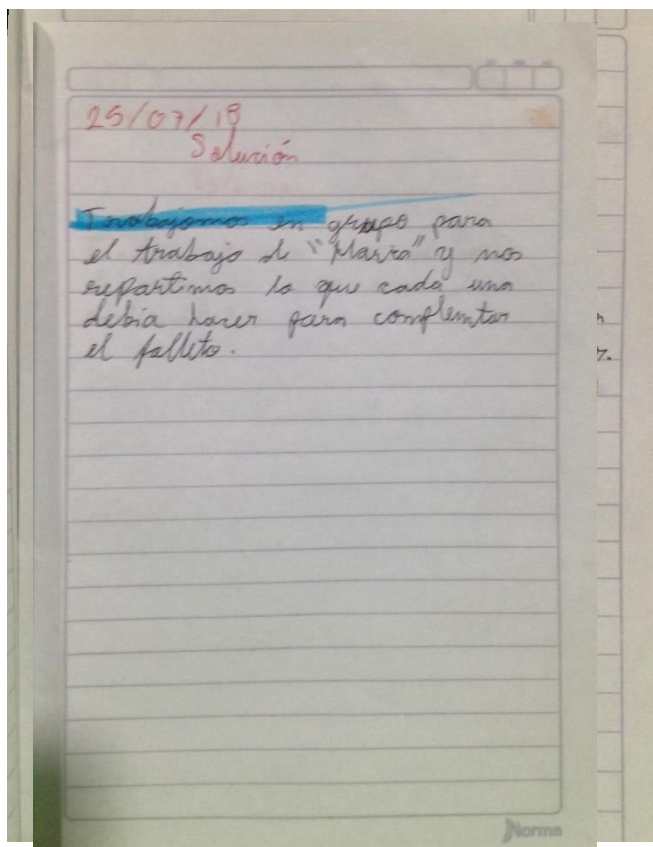 25/07/18
Solución
Trabajamos en grupo para
el trabajo de "Marra" y nos
repartimos lo que cada una
debía hacer para complemtar
el falleto.
Norma